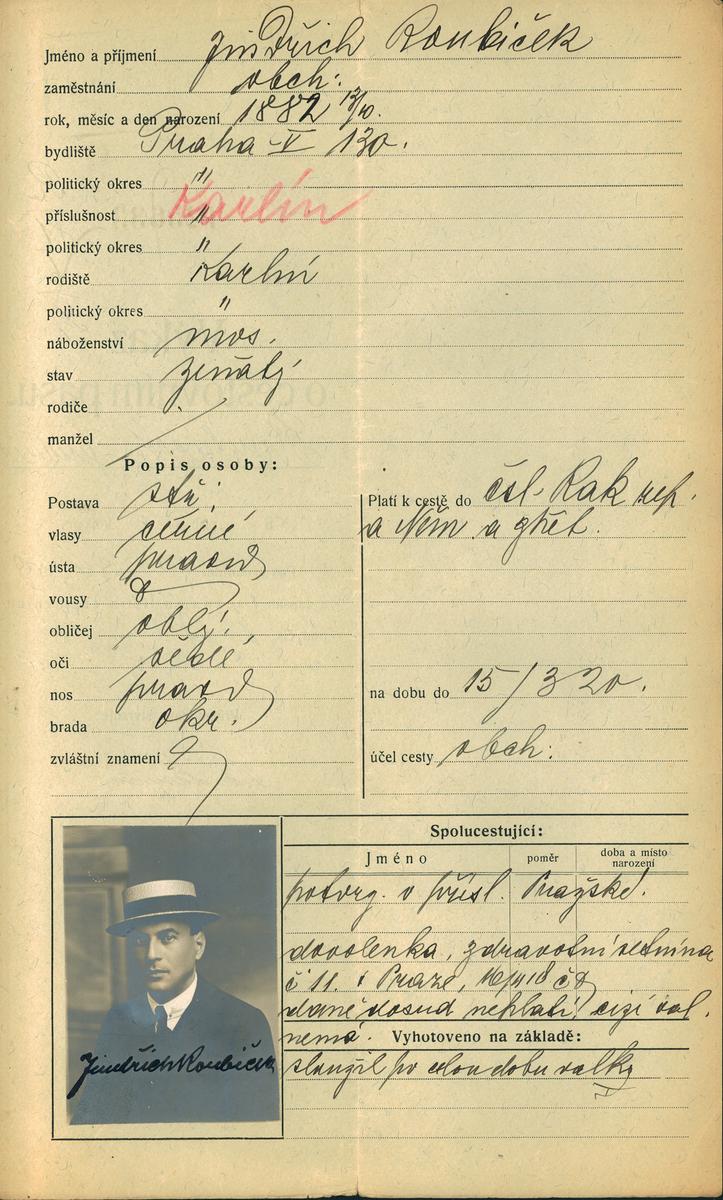 Jméno a příjmení Jindřich Roubíček
zaměstnání obch:
rok, měsíc a den narození 1882 12/10.
bydliště Praha - V 130.
politický okres "
příslušnost " Karlín
politický okres "
rodiště Karlín
politický okres "
náboženství mos.
stav ženatý
rodiče
manžel
Popis osoby:
Postava stř.
vlasy černé
ústa pravid
vousy
obličej oblý.
oči šedé
nos pravid
brada okr.
zvláštní znamení
Platí k cestě do čsl. Rak rep.
a Něm. a zpět.
na dobu do 15/3 20.
účel cesty obch:
Spolucestující:
Jméno poměr doba a místo narození
potvrz. o přísl. Pražské.
dovolenka, zdravotní setnina
č 11. v Praze,
daně dosud neplatí cizí
nemá.
Vyhotoveno na základě:
sloužil po celou dobu války
Jindřich Roubíček